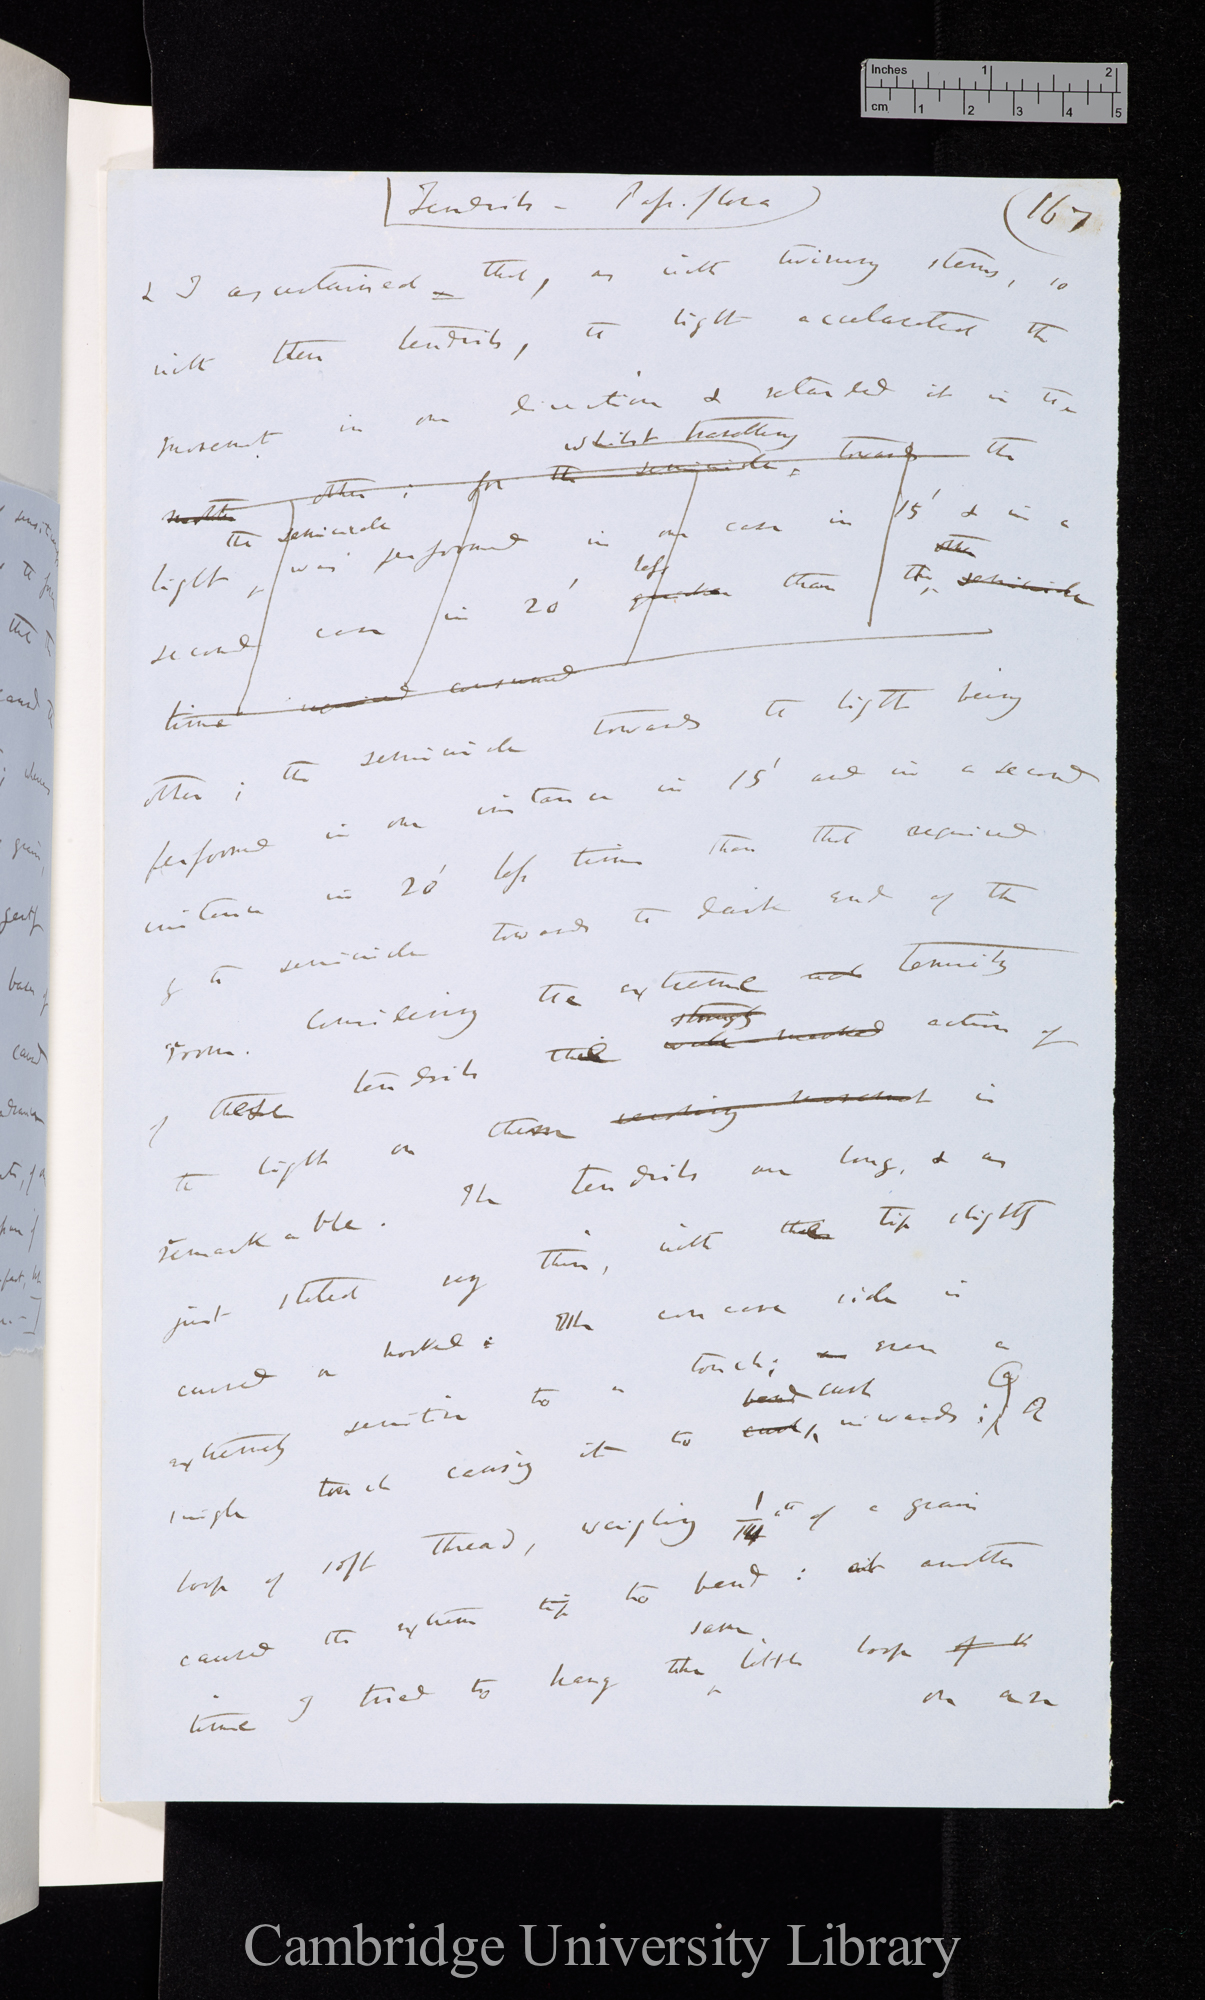 Inches 1 2
cm 1 2 3 4 5
Tendrils - Passiflora
(167
& I ascertained that, as with twining stems, so
with these tendrils, the light accelerated the
movement in one direction & retarded it in the
whilst travelling
other; for the semicircle, towards the
the semicircle
light, was performed in one case in 15' & in a
less other
second case in 20' quicker than the semicircle
time consumed
other; the semicircle towards the light being
performed in one instance in 15' and in a second
instance in 20' less time than that required
by the semicircle towards the dark end of the
room. Considering the extreme tenuity
strongly
of these tendrils the well-marked action of
the light on them revolving movement is
remarkable. The tendrils are long, & as
just stated very thin, with the tip slightly
curved or hooked: The concave side is
extremely sensitive to a touch; even a
bend curl
single touch causing it to curl inwards; A
loop of soft thread, weighing 1/14th of a grain
caused the extreme tip to bend: at another
same
time I tried to hang the little loop of
on an
Cambridge University Library